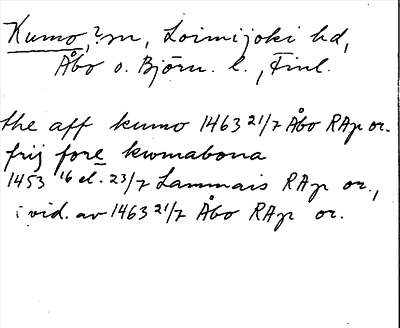 Kumo, ?sn, Loimijoki hd,
Åbo o. Björn. l., Finl.
the aff kumo 1463 21/7 Åbo RAp or.
frij fore kwmabona
1453 16 el. 23/7 Lammais RAp or.,
i vid. av 1463 21/7 Åbo RAp or.